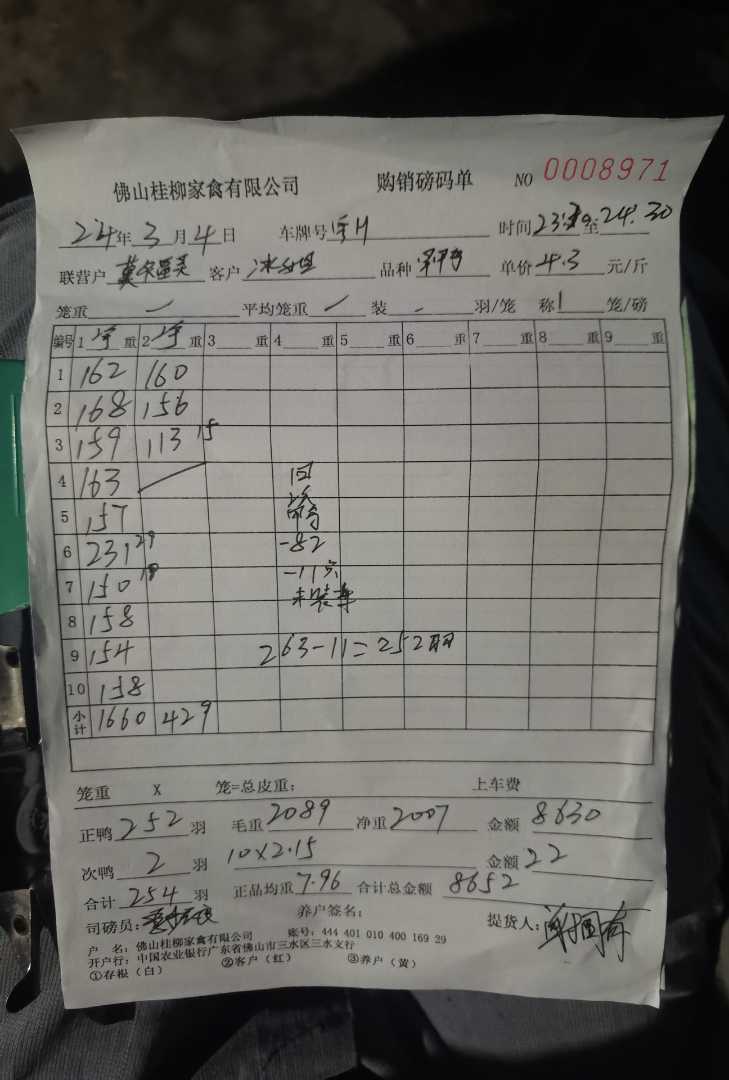 佛山桂柳家禽有限公司 购销磅码单 NO 0008971
24年3月4日 车牌号 时间 23 至 24:30
联营户 客户 品种 单价 4.3 元/斤
笼重 — 平均笼重 装 - 羽/笼 称 1 笼/磅
编号 1 重 2 重 3 重 4 重 5 重 6 重 7 重 8 重 9 重
1 162 160
2 168 156
3 159 113 15
4 163 回
5 157
6 231 29 -82
7 150 18 -11只
8 158 未装车
9 154 263-11=252羽
10 158
小计 1660 429
笼重 X 笼=总皮重: 上车费
正鸭 252 羽 毛重 2089 净重 2007 金额 8630
次鸭 2 羽 10×2.15 金额 22
合计 254 羽 正品均重 7.96 合计总金额 8652
司磅员: 养户签名: 提货人:
户 名: 佛山桂柳家禽有限公司 账号: 444 401 010 400 169 29
开户行: 中国农业银行广东省佛山市三水区三水支行
①存根(白) ②客户(红) ③养户(黄)